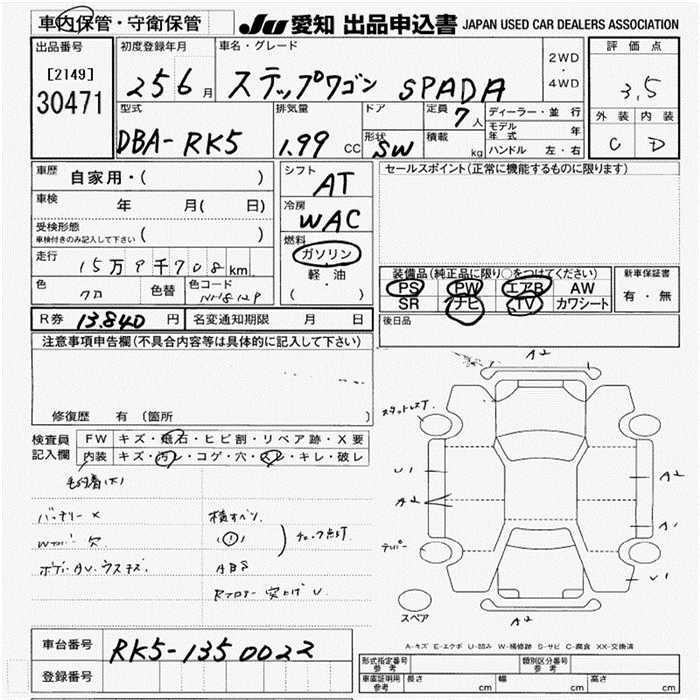 車内保管・守衛保管
JU 愛知 出品申込書 JAPAN USED CAR DEALERS ASSOCIATION
出品番号
[2149]
30471
初度登録年月
25 6 月
車名・グレード
ステップワゴン SPADA
2WD
・
4WD
評価点
3.5
外装 内装
C D
型式
DBA-RK5
排気量
1.99 CC
ドア
形状
SW
定員
7 人
積載
kg
ディーラー・並行
モデル年式 年
ハンドル 左・右
車歴
自家用・( )
車検
年 月( 日)
受検形態
車検付きのみ記入して下さい
( )
走行
15万9千708km
色
クロ
色替
色コード
シフト
AT
冷房
WAC
燃料
ガソリン
軽・油
( )
セールスポイント(正常に機能するものに限ります)
装備品(純正品に限り○をつけてください)
PS PW エアB AW
SR ナビ TV カワシート
新車保証書
有・無
R券 13.840 円
名変通知期限 月 日
後日品
注意事項申告欄(不具合内容等は具体的に記入して下さい)
修復歴 有(箇所
検査員
記入欄
FW キズ・飛石・ヒビ割・リペア跡・X要
内装 キズ・汚レ・コゲ・穴・スレ・キレ・破レ
バッテリーX
欠
チェック点灯
A2
スタットレス
U1
A2
A2
A1
テンパー
U1
スペア
A2
A-キズ E-エクボ U-凹み W-補修跡 S-サビ C-腐食 XX-交換済
車台番号
RK5-1350022
登録番号
形式指定番号
参考
類別区分番号
参考
車庫証明用
参考
長さ cm 幅 cm 高さ cm